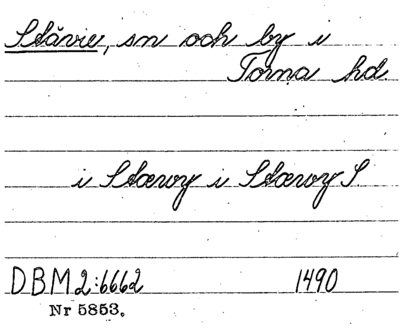 Stävie, sn och by i
Torna hd.
i Stærvy i Stærvy S.
DBM 2:6662 1490
Nr 5853.